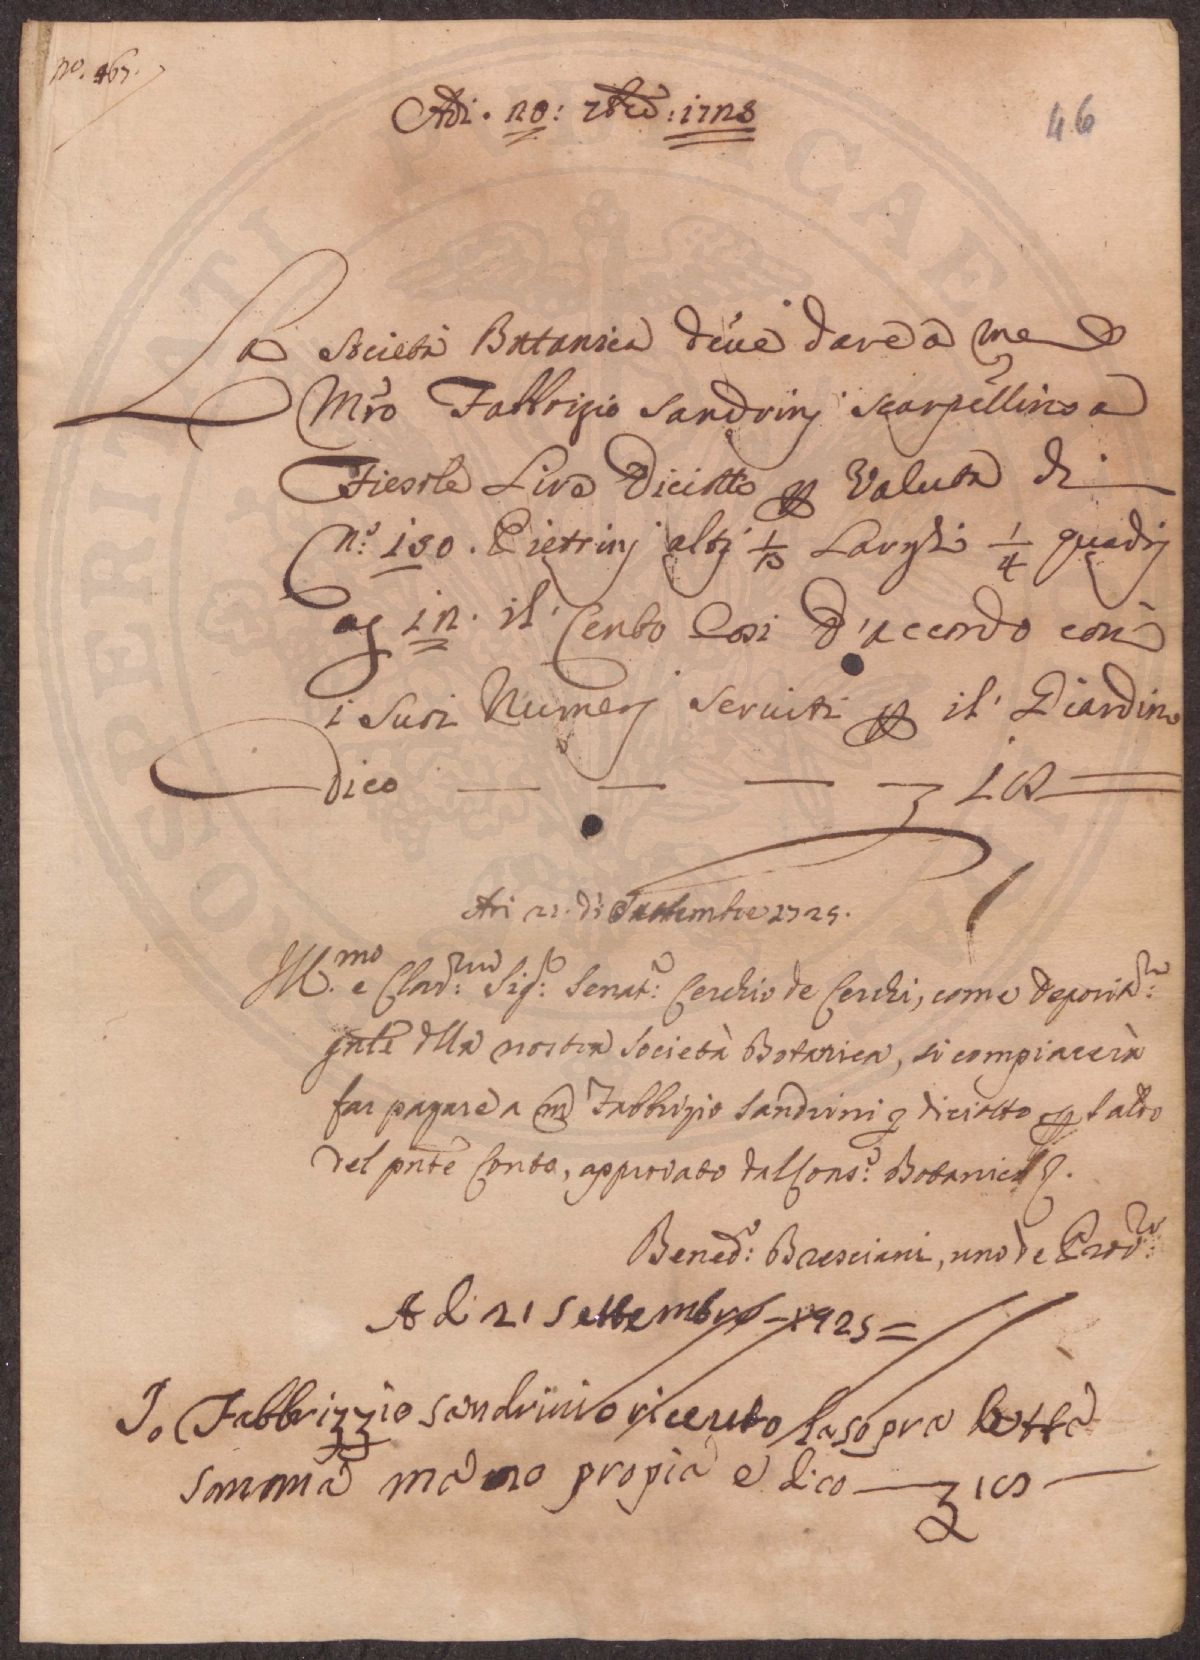 No. 167.
46
Adi. 20: 7bre: 1725
La Società Bottanica deve dare a me
Mro Fabbrizio Sandrinj scarpellino a
Fiesole Lire Diciotto p Valuta di
N.° 150. Pietrinj altj 1/3 Larghi 1/4 quadrj
a £ 12. il Cento Così d'acordo con
i Suoi Numerj serviti p il Giardino
dico — — — — £ 18
Adi 21. di Settembre 1725.
Ill.mo e Clar.mo Sig.r Senat.e Cerchio de Cerchi, come Deposita.rio
gnle dlla nostra Società Botanica, si compiacerà
far pagare a m Fabbrizio Sandrini £ diciotto p saldo
del pnte Conto, approvato dal Cons.o Botanico
Bened.o Bresciani, uno de Prov.ri
A di 21 Settembre - 1725 =
Io Fabbrizzio Sandrini o riceuto la sopra detta
somma mano propia e dico — £ 18 —